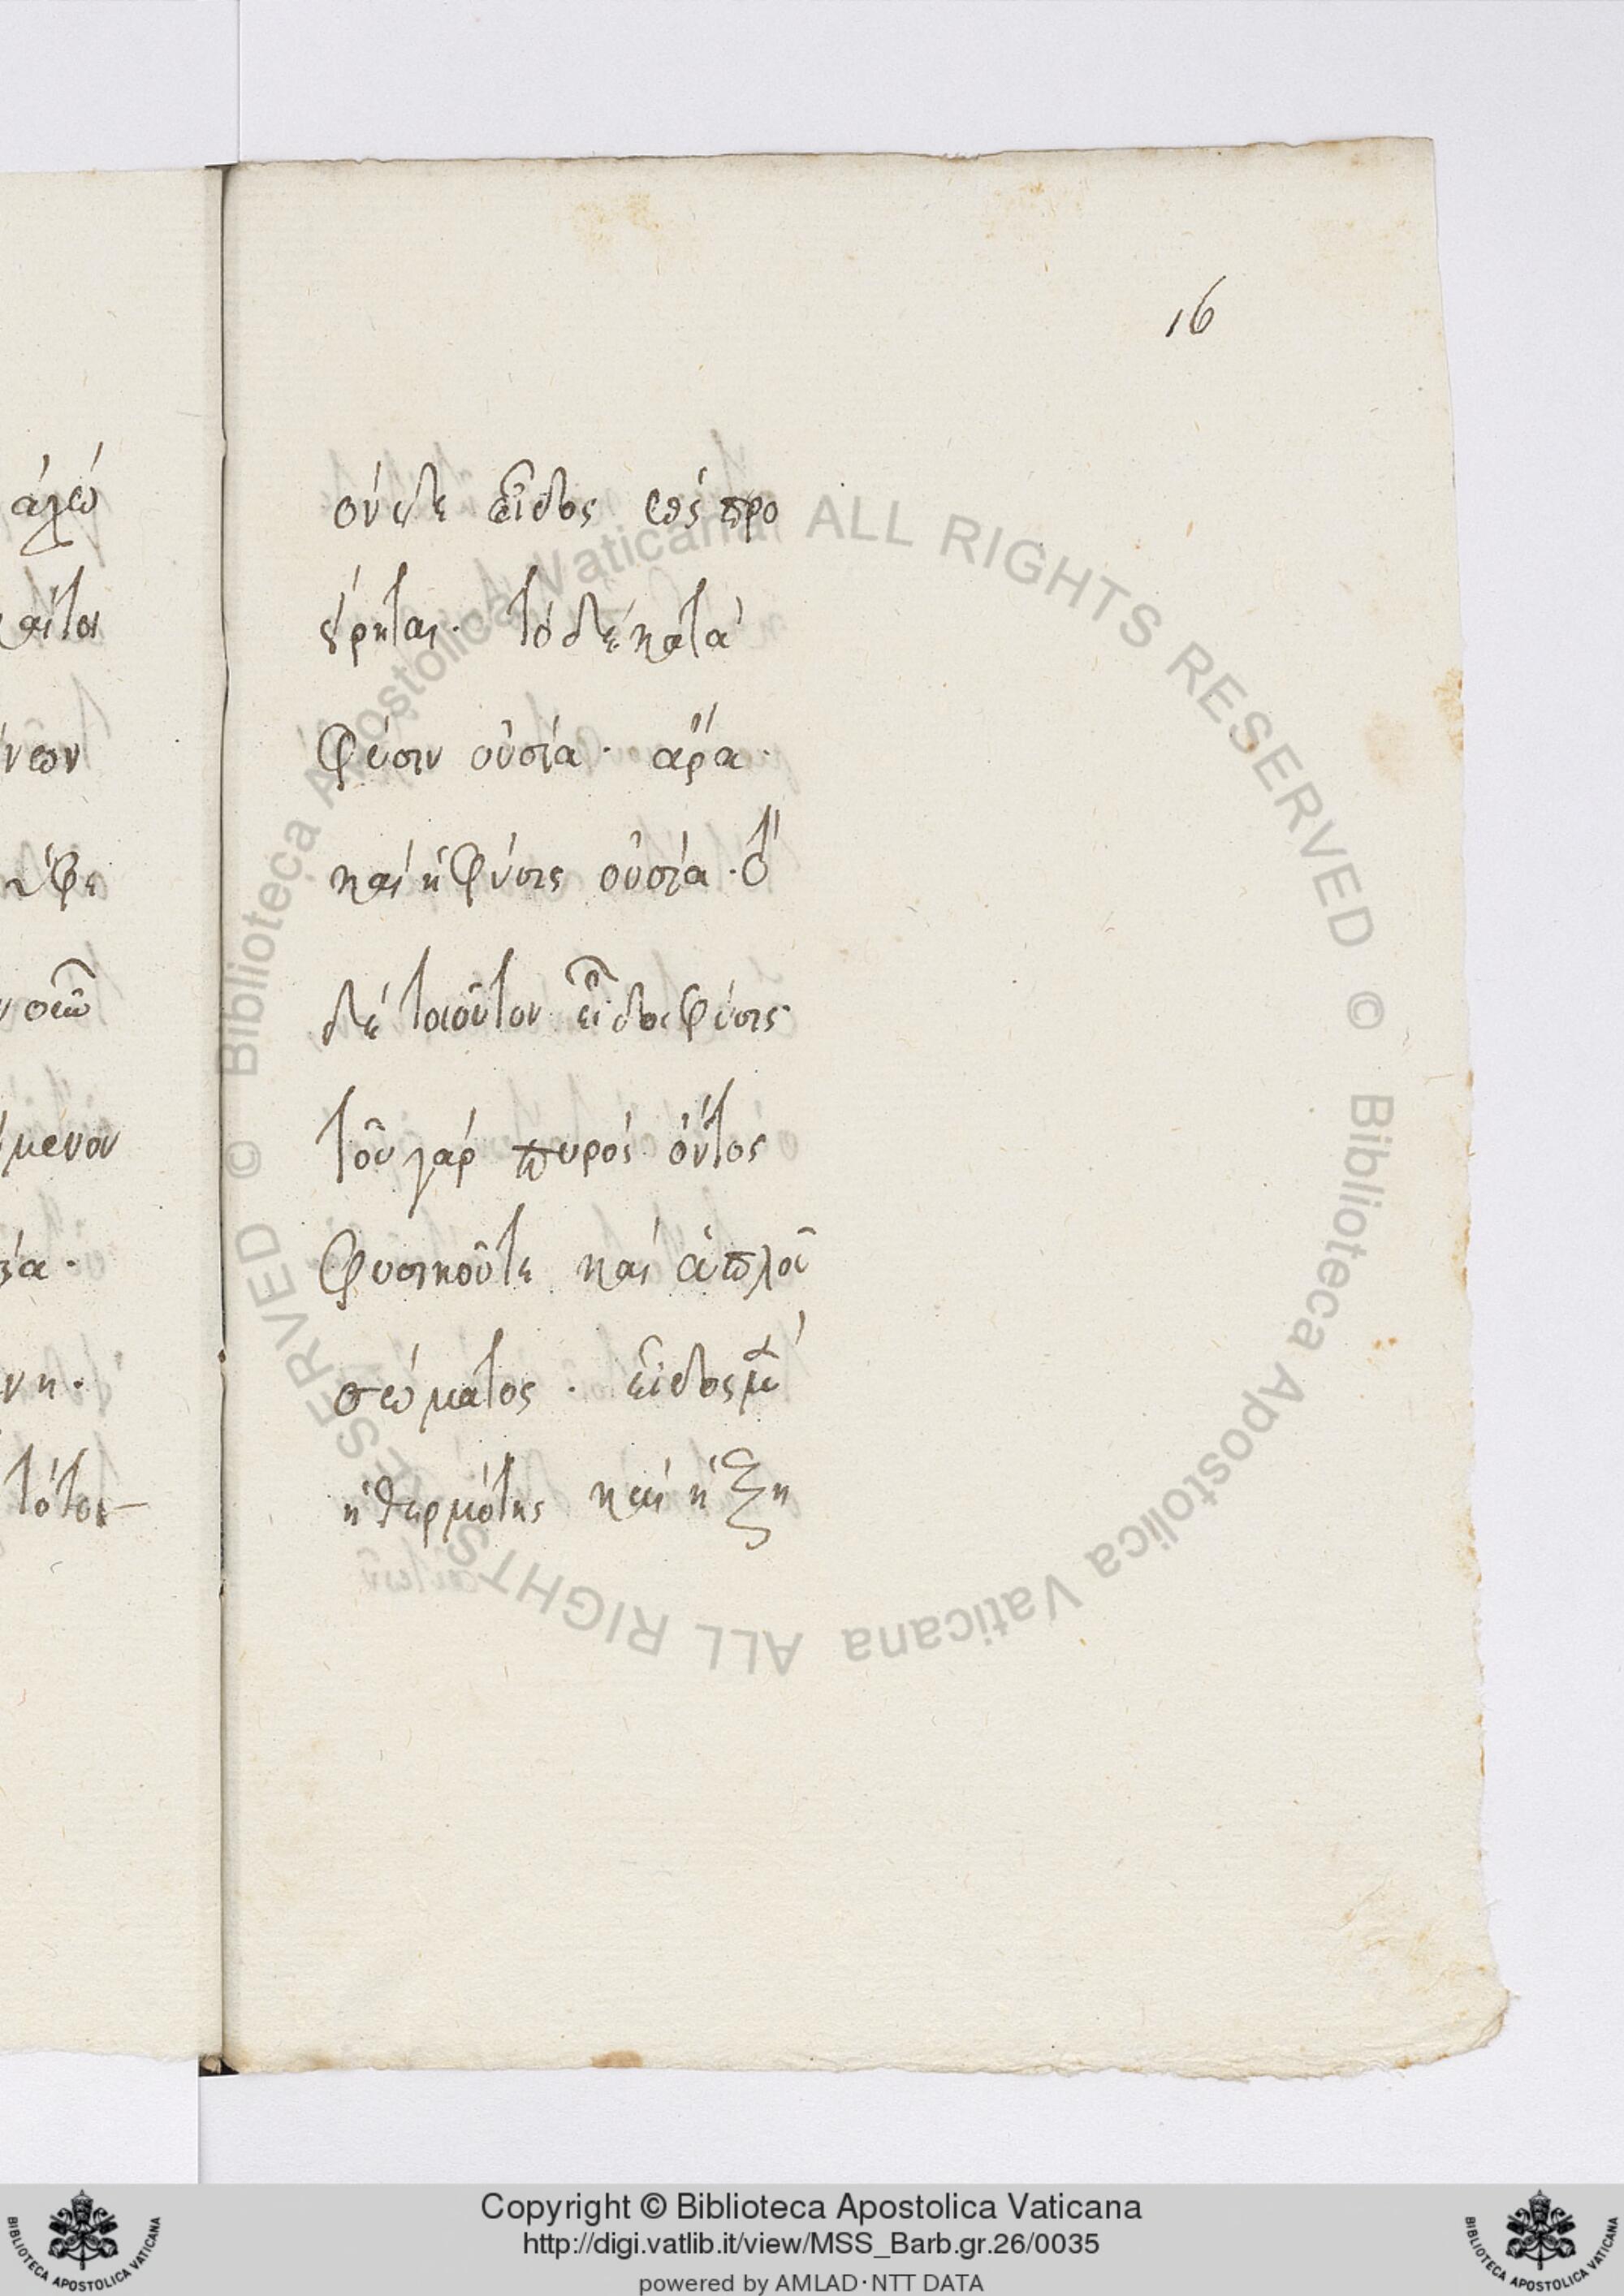 16
ούδε εἶδος ὡς προ
είρηται · τὸ δὲ κατὰ
φύσιν οὐσία · ἄρα ·
καὶ ἡ φύσις οὐσία · ὅτι
δὲ τοιοῦτον εἶδος φύσις
τοῦ γὰρ πυρὸς ὄντος
φυσικοῦ τε καὶ ἁπλοῦ
σώματος · εἶδος μὲν
ἡ θερμότης καὶ ἡ ξη
ALL RIGHTS RESERVED © Biblioteca Apostolica Vaticana ALL RIGHTS RESERVED © Biblioteca Apostolica Vaticana
Copyright © Biblioteca Apostolica Vaticana
http://digi.vatlib.it/view/MSS_Barb.gr.26/0035
powered by AMLAD·NTT DATA
BIBLIOTECA APOSTOLICA VATICANA
BIBLIOTECA APOSTOLICA VATICANA